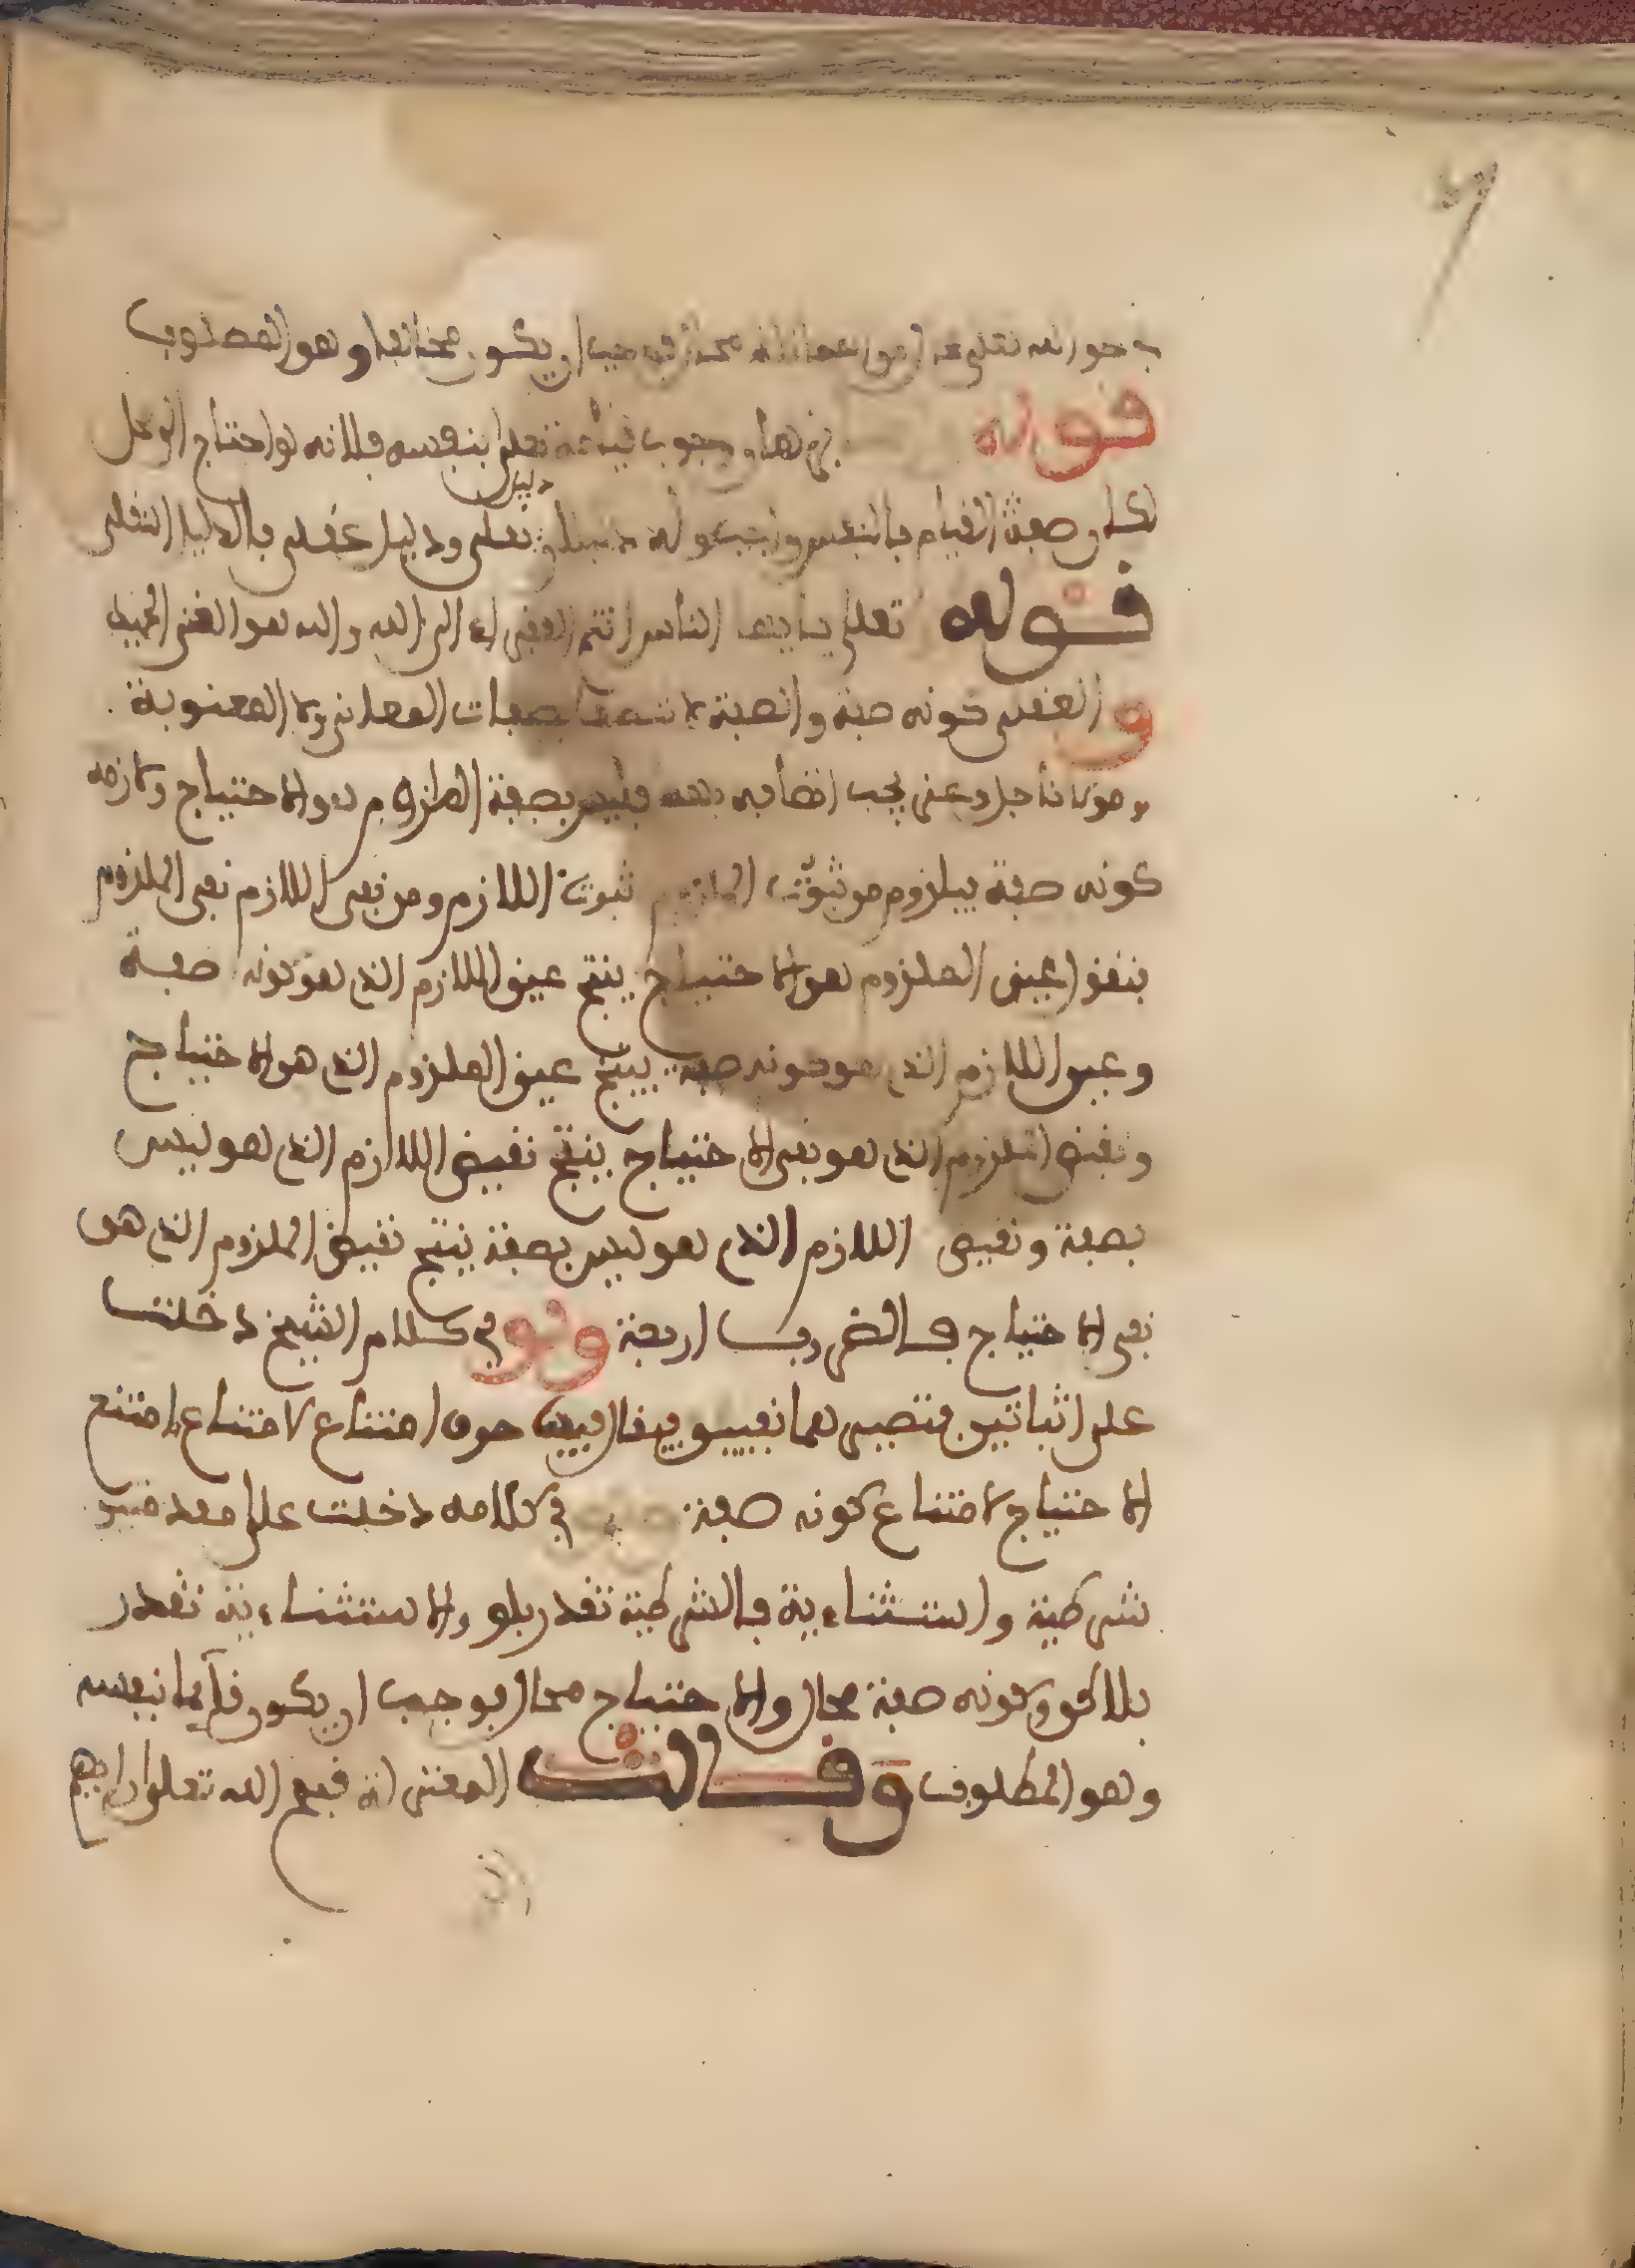 في حق الله تعلى محال فوجب ان يكون مخالفا وهو المطلوب
قوله برهان وجوب قيامه تعلى بنفسه فلانه لو احتاج الى محل
لكان صفة القيام بالنفس دليل نقلي ودليل عقلي فالدليل النقلي
قوله تعلى يا ايها الناس انتم الفقراء الى الله والله هو الغني الحميد
و العقلي كونه صفة والصفة لا تتصف بصفات المعاني ولا المعنوية
ومولانا جل وعز يجب اتصافه بهما فليس بصفة الملزوم هو الاحتياج ولازمه
كونه صفة يلزم من ثبوت الملزوم ثبوت اللازم ومن نفي اللازم نفي الملزوم
عين الملزوم هو الاحتياج ينتج عين اللازم الذي هو كونه صفة
وعين اللازم الذي هو كونه صفة ينتج عين الملزوم الذي هو الاحتياج
ونقيض الملزوم الذي هو نفي الاحتياج ينتج نقيض اللازم الذي هو ليس
بصفة ونقيض اللازم الذي هو ليس بصفة ينتج نقيض الملزوم الذي هو
نفي الاحتياج فالضروب اربعة ولو في كلام الشيخ دخلت
على اثباتين فتصيرهما نفيين فيقال فيها حرف امتناع لامتناع امتنع
الاحتياج لامتناع كونه صفة في كلامه دخلت على مقدمتين
شرطية واستثناءية فالشرطية تقدر بلو والاستثناءية تقدر
بلاكن وكونه صفة محال والاحتياج محال فوجب ان يكون قآيما بنفسه
وهو المطلوب وقالت المعنى انه قيم الله تعلى